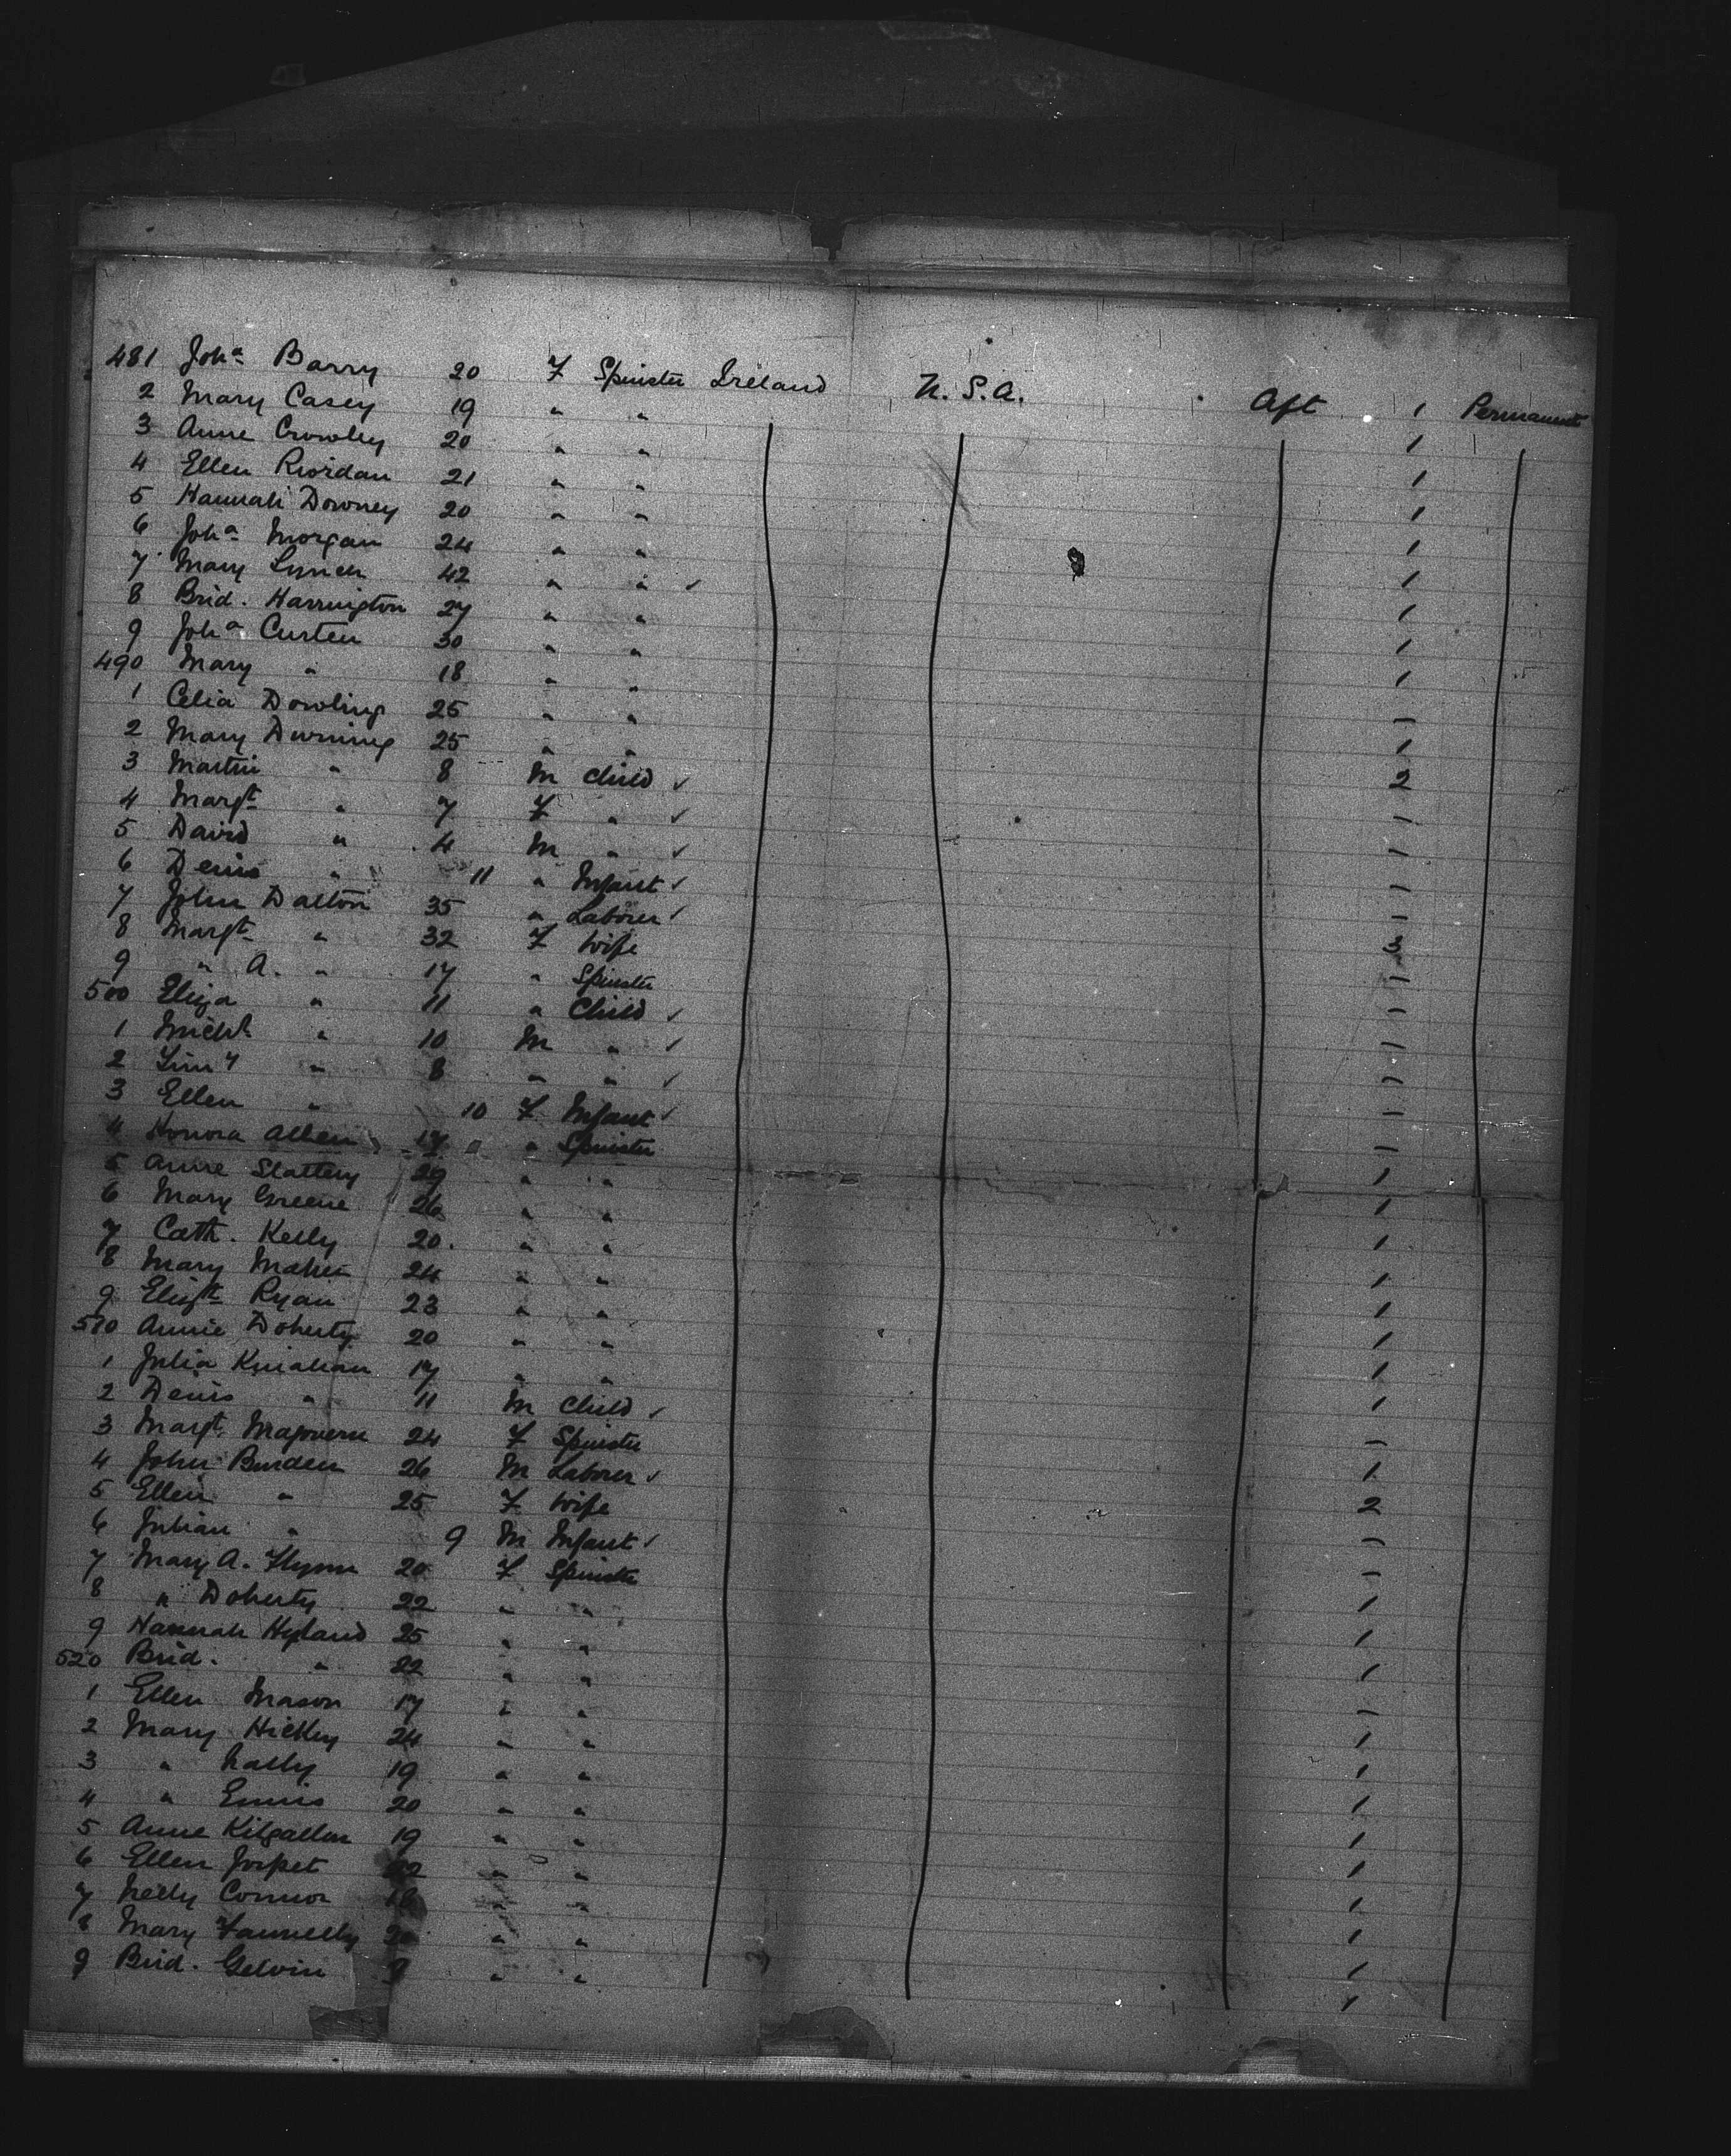 481 Joha Barry 20 F Spinster Ireland U.S.A. Aft 1 Permanent
2 Mary Casey 19 " " 1
3 Anne Crowley 20 " " 1
4 Ellen Riordan 21 " " 1
5 Hannah Downey 20 " " 1
6 Joha Morgan 24 " " 1
7 Mary Lynch 42 " " ✓ 1
8 Brid. Harrington 27 " " 1
9 Joha Curten 30 " " 1
490 Mary " 18 " " –
1 Celia Dowling 25 " " 1
2 Mary Durning 25 " " 2
3 Martin " 8 M Child ✓ –
4 Margt " 7 F " ✓ –
5 David " 4 M " ✓ –
6 Denis " 11 " Infant ✓ –
7 John Dalton 35 " Laborer ✓ 3
8 Margt " 32 F Wife –
9 " A. " 17 " Spinster –
500 Eliza " 11 " Child ✓ –
1 Michl " 10 M " ✓ –
2 Timy " 8 " " ✓ –
3 Ellen " 10 F Infant ✓ –
4 Honora Allen 17 " Spinster 1
5 Anne Slattery 29 " " 1
6 Mary Greene 26 " " 1
7 Cath. Kelly 20 " " 1
8 Mary Maher 24 " " 1
9 Elizth Ryan 23 " " 1
510 Annie Doherty 20 " " 1
1 Julia Kinahan 17 " " 1
2 Denis " 11 M Child ✓ –
3 Margt Magovern 24 F Spinster 1
4 John Burden 26 M Laborer ✓ 2
5 Ellen " 25 F Wife –
6 Julian " 9 M Infant ✓ –
7 Mary A. Flynn 20 F Spinster 1
8 " Doherty 22 " " 1
9 Hannah Hyland 25 " " 1
520 Brid. " 22 " " –
1 Ellen Mason 17 " " 1
2 Mary Hickey 24 " " 1
3 " Nally 19 " " 1
4 " Ennis 20 " " 1
5 Anne Kilgallen 19 " " 1
6 Ellen " " 1
7 Nelly Connor 18 " " 1
8 Mary Fannelly 20 " " 1
9 Brid. Gelvin " " 1